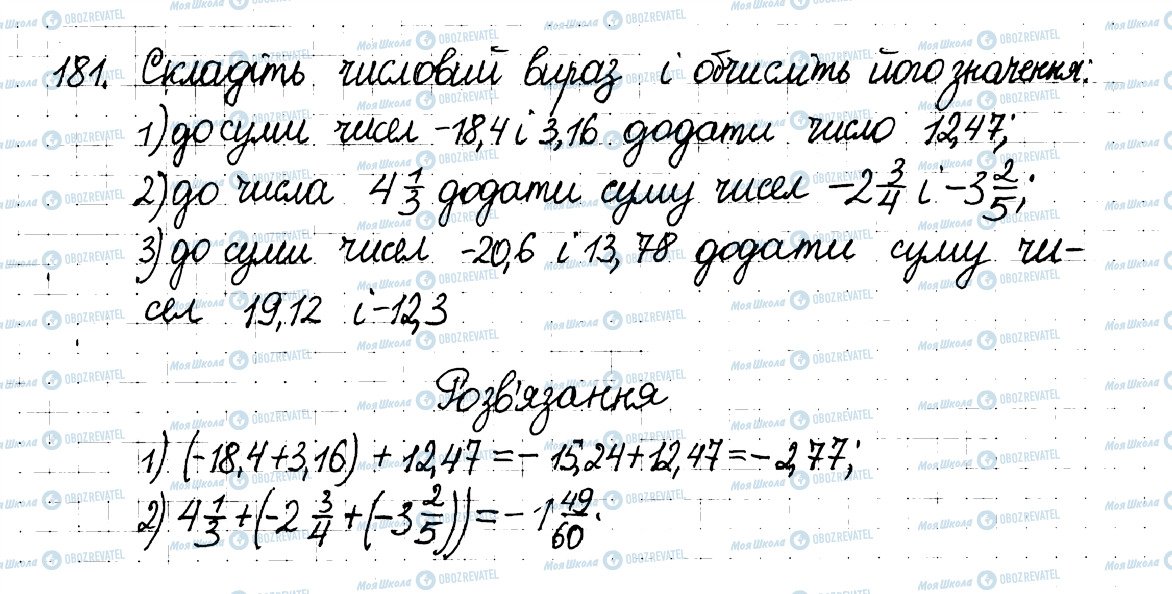 181. Складіть числовий вираз і обчисліть його значення:
1) до суми чисел -18,4 і 3,16 додати число 12,47;
2) до числа 4 1/3 додати суму чисел -2 3/4 і -3 2/5;
3) до суми чисел -20,6 і 13,78 додати суму чи-
сел 19,12 і -12,3
Розв'язання
1) (-18,4+3,16) + 12,47 = - 15,24+12,47 = - 2,77;
2) 4 1/3 + (-2 3/4 + (-3 2/5)) = - 1 49/60.